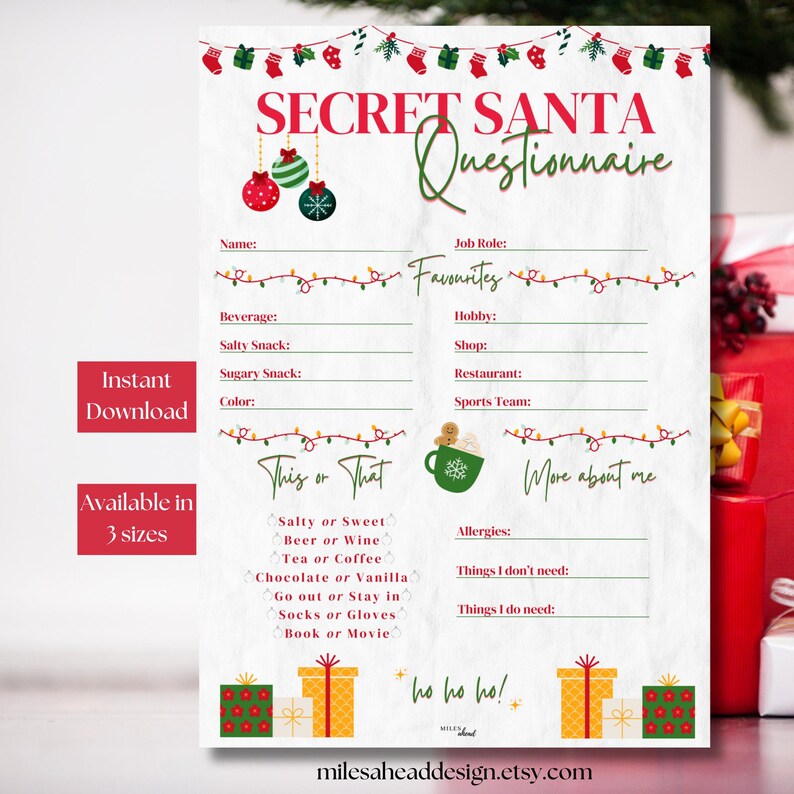 SECRET SANTA
Questionnaire
Name:
Job Role:
Favourites
Beverage:
Hobby:
Salty Snack:
Shop:
Sugary Snack:
Restaurant:
Color:
Sports Team:
This or That
More about me
Salty or Sweet
Beer or Wine
Tea or Coffee
Chocolate or Vanilla
Go out or Stay in
Socks or Gloves
Book or Movie
Allergies:
Things I don't need:
Things I do need:
ho ho ho!
MILES ahead
Instant
Download
Available in
3 sizes
milesaheaddesign.etsy.com